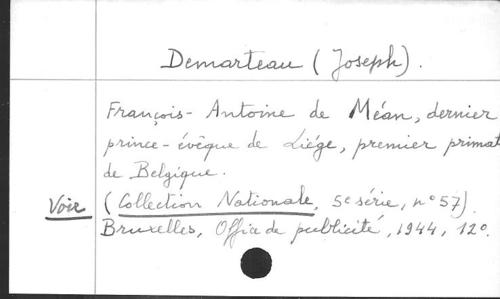 Demarteau (Joseph).
François-Antoine de Méan, dernier
prince-évêque de Liége, premier primat
de Belgique.
Voir (Collection Nationale, 5e série, n° 57)
Bruxelles, Office de publicité, 1944, 12°.